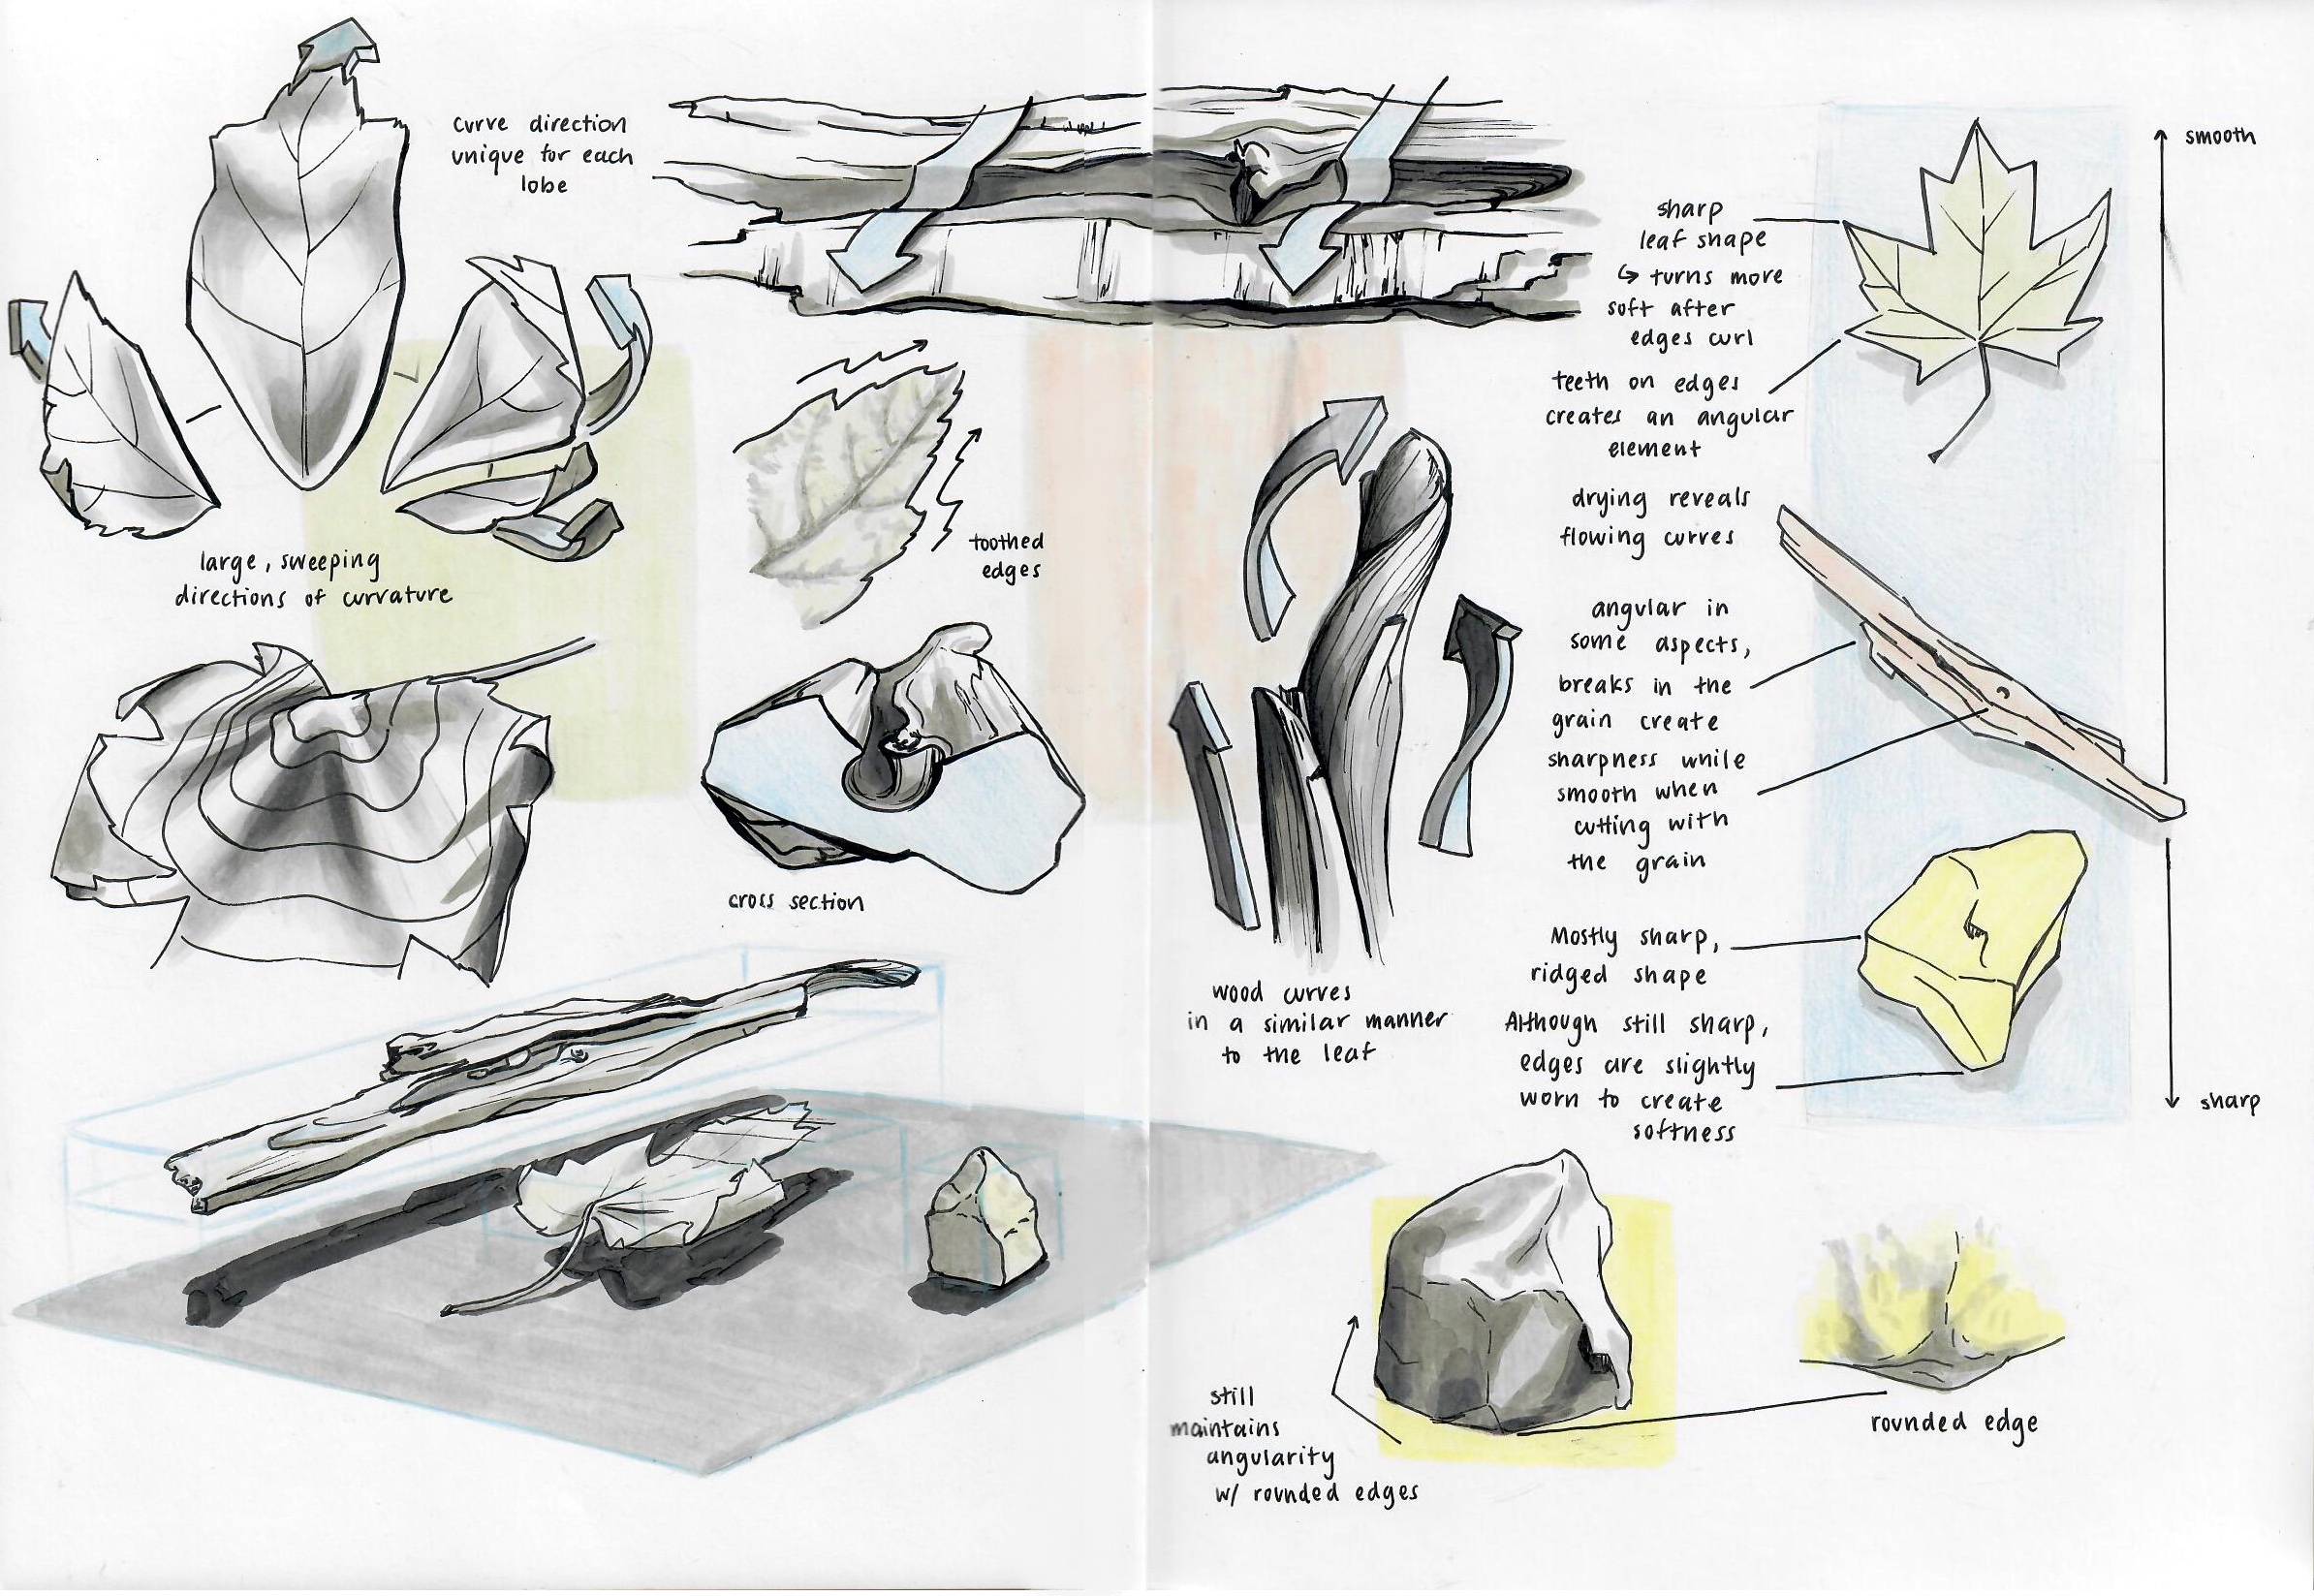 curve direction
unique for each
lobe
large, sweeping
directions of curvature
toothed
edges
cross section
wood curves
in a similar manner
to the leaf
sharp
leaf shape
↳ turns more
soft after
edges curl
teeth on edges
creates an angular
element
drying reveals
flowing curves
angular in
some aspects,
breaks in the
grain create
sharpness while
smooth when
cutting with
the grain
Mostly sharp,
ridged shape
Although still sharp,
edges are slightly
worn to create
softness
smooth
sharp
still
maintains
angularity
w/ rounded edges
rounded edge